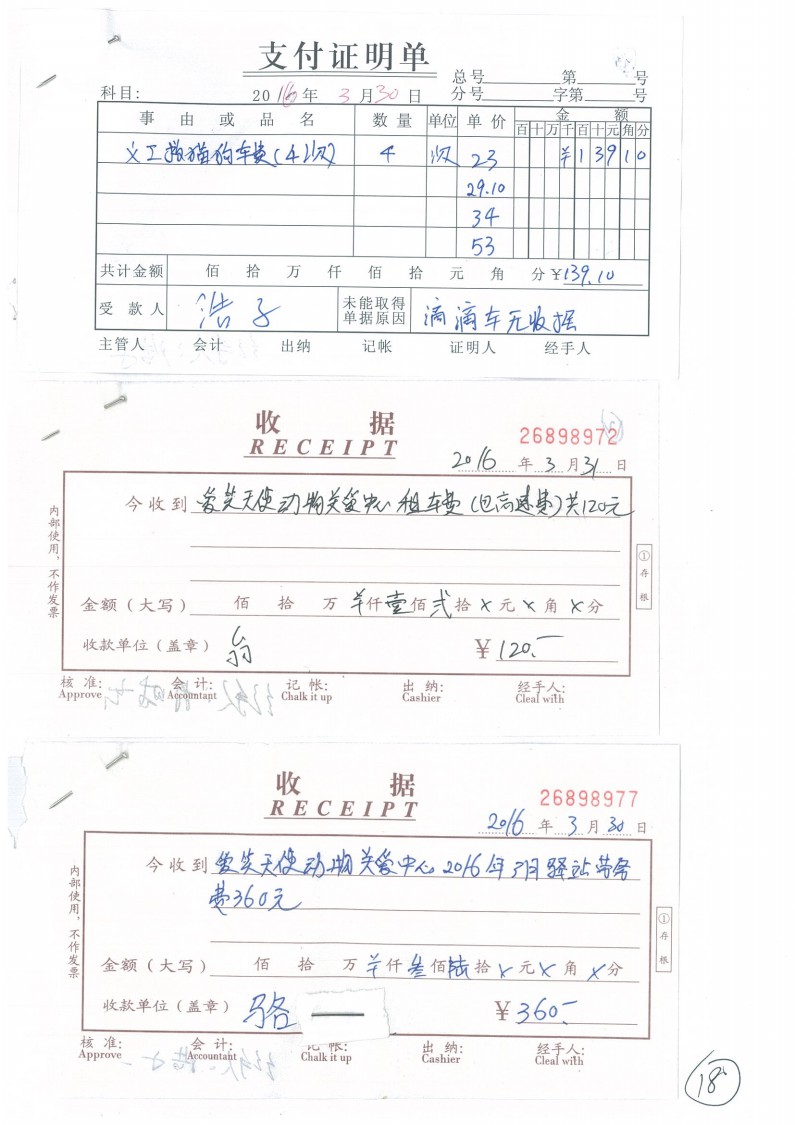 支付证明单
总号 第 号
科目: 2016年 3月30日 分号 字第 号
事由或品名 数量 单位 单价 金额
百十万千百十元角分
义工搬猫狗车费(4次) 4 次 23 ¥13910
29.10
34
53
共计金额 佰 拾 万 仟 佰 拾 元 角 分 ¥139.10
受款人 浩子 未能取得单据原因 滴滴车无收据
主管人 会计 出纳 记帐 证明人 经手人
收据
RECEIPT
26898972
2016年3月31日
今收到 爱笑天使动物关爱中心租车费(包高速费)共120元
内部使用,不作发票
①存根
金额(大写) 佰 拾 万 仟壹佰弍拾×元×角×分
收款单位(盖章) 翁 ¥120.—
核准: 会计: 记帐: 出纳: 经手人:
Approve Accountant Chalk it up Cashier Cleal with
收据
RECEIPT
26898977
2016年3月30日
今收到 爱笑天使动物关爱中心2016年3月驿站劳务
费360元
内部使用,不作发票
①存根
金额(大写) 佰 拾 万 仟叁佰陆拾×元×角×分
收款单位(盖章) 骆 ¥360.—
核准: 会计: 记帐: 出纳: 经手人:
Approve Accountant Chalk it up Cashier Cleal with
18